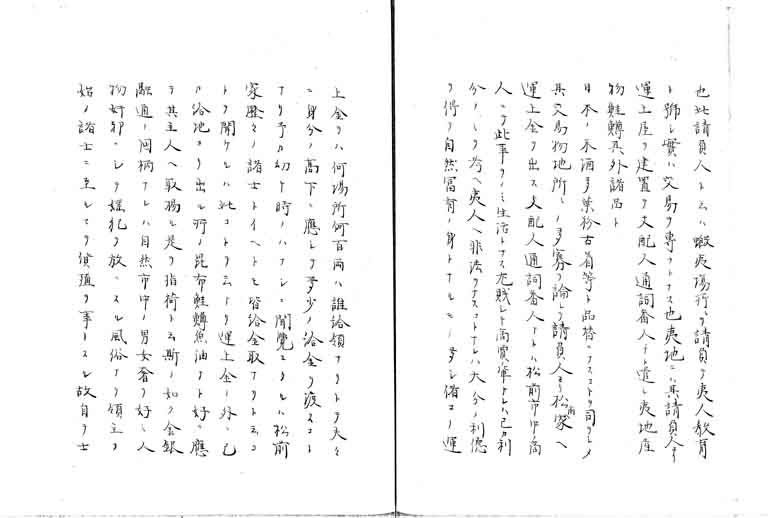 也此請負人ト云ハ蝦夷場所ヲ請負テ夷人教育
ト号シ實ハ交易ヲ専ラトナス也夷地ニハ其請負人ヨリ
運上屋ヲ建置テ支配人通詞番人ナト遣シ夷地産
物鮭鱒其外諸品ト
日本ノ米酒多葉粉古着等ト品替ヲナスコトヲ司ラシメ
其交易物地所ノ多寡ヲ論シ請負人ヨリ松前家ヘ
運上金ヲ出ス支配人通詞番人ナトハ松前市中ノ商
人ニテ此事ヲノミ生活トナス尤賤シキ商賣ノ輩ナレハ己カ利
分ノミヲ考ヘ夷人ヘ非法ヲナスコトナレハ大分ノ利徳
ヲ得テ自然富有ノ身トナルモノ多シ偖コノ運
上金ヲハ何場所何百両ハ誰給領ナリトテ夫々
ニ身分ノ高下ニ應シテ多少ノ給金ヲ渡スコト
ナリ予カ幼ケ時ノハナシニ聞覺エタルハ松前
家歴々ノ諸士トイヘトモ皆給金取ナリト云コ
トヲ聞ケルハ此コトヲ云ナリ運上金ノ外ニ己
カ給地ヨリ出ル所ノ昆布鮭鱒魚油ナト好ニ應
シ其主人ヘ取揚ル是ヲ指荷ト云斯ノ如ク金銀
融通ノ国柄ナレハ自然市中ノ男女奢ヲ好ミ人
物奸邪ニシテ婬犯ヲ放ニスル風俗ナリ領主ヲ
始ノ諸士ニ至ルマテ貨殖ヲ事トスル故自ラ士